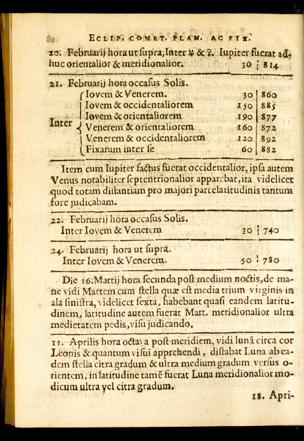 82 ECLIP. COMET. PLAN. AC FIX.
20. Februarij hora ut supra, Inter ♃ & ♀. Iupiter fuerat ad-
huc orientalior & meridionalior. 30 814
21. Februarij hora occasus Solis.
Iovem & Venerem. 30 860
Iovem & occidentaliorem 150 885
Iovem & orientaliorem 190 877
Inter Venerem & orientaliorem 160 872
Venerem & occidentaliorem 120 892
Fixarum inter se 60 882
Item cum Iupiter factus fuerat occidentalior, ipsa autem
Venus notabiliter septentrionalior apparebat, ita videlicet
quod totam distantiam pro majori parte latitudinis tantum
fore judicabam.
22. Februarij hora occasus Solis.
Inter Iovem & Venerem 30 740
24. Februarij hora ut supra.
Inter Iovem & Venerem. 50 780
Die 16. Martij hora secunda post medium noctis, de ma-
ne vidi Martem cum stella quæ est media trium virginis in
ala sinistra, videlicet sexta, habebant quasi eandem latitu-
dinem, latitudine autem fuerat Mart. meridionalior ultra
medietatem pedis, visu judicando.
11. Aprilis hora octava post meridiem, vidi lunā circa cor
Leonis & quantum visui apprehendi, distabat Luna ab ea-
dem stella citra gradum & ultra medium gradum versus o-
rientem, in latitudine tamē fuerat Luna meridionalior mo-
dicum ultra vel citra gradum.
18. Apri-